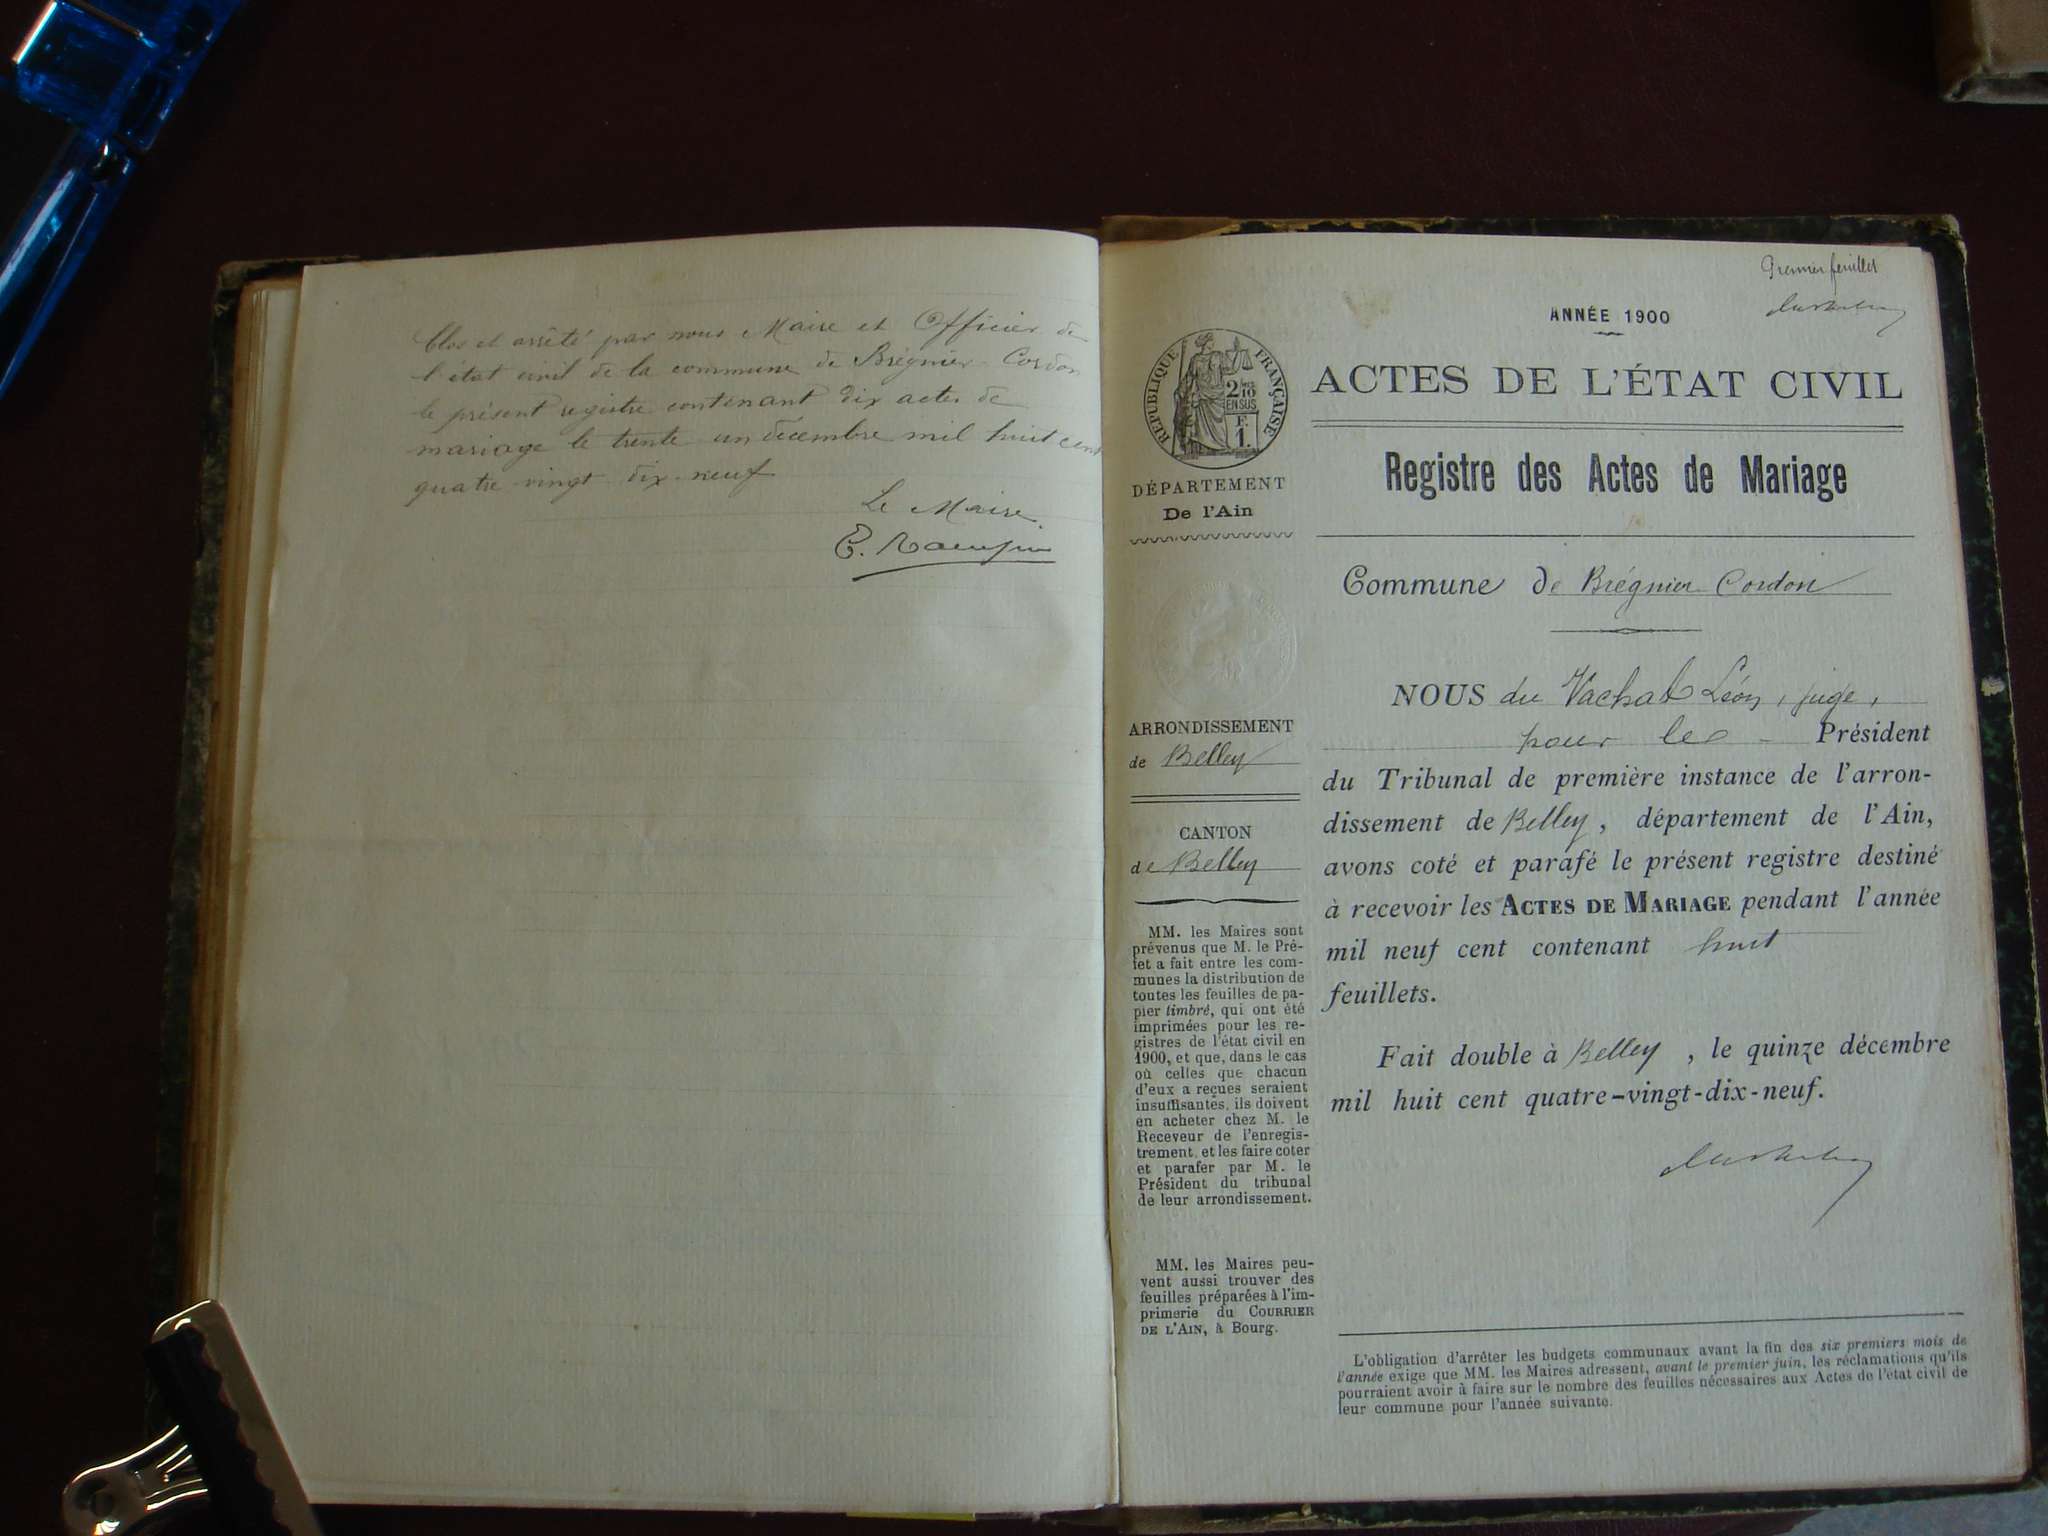 Clos et arrêté par nous Maire et Officier de
l'état civil de la commune de Brégnier-Cordon
le présent registre contenant dix actes de
mariage le trente un décembre mil huit cent
quatre vingt dix-neuf
Le Maire.
Premier feuillet
ANNÉE 1900
ACTES DE L'ÉTAT CIVIL
Registre des Actes de Mariage
RÉPUBLIQUE FRANÇAISE
2/10
EN SUS
F.
1.
DÉPARTEMENT
De l'Ain
Commune de Brégnier-Cordon
ARRONDISSEMENT
de Belley
CANTON
de Belley
MM. les Maires sont
prévenus que M. le Pré-
fet a fait entre les com-
munes la distribution de
toutes les feuilles de pa-
pier timbré, qui ont été
imprimées pour les re-
gistres de l'état civil en
1900, et que, dans le cas
où celles que chacun
d'eux a reçues seraient
insuffisantes, ils doivent
en acheter chez M. le
Receveur de l'enregis-
trement, et les faire coter
et parafer par M. le
Président du tribunal
de leur arrondissement.
MM. les Maires peu-
vent aussi trouver des
feuilles préparées à l'im-
primerie du COURRIER
DE L'AIN, à Bourg.
NOUS du Vachat Léon, juge,
pour le Président
du Tribunal de première instance de l'arron-
dissement de Belley, département de l'Ain,
avons coté et parafé le présent registre destiné
à recevoir les ACTES DE MARIAGE pendant l'année
mil neuf cent contenant huit
feuillets.
Fait double à Belley, le quinze décembre
mil huit cent quatre-vingt-dix-neuf.
L'obligation d'arrêter les budgets communaux avant la fin des six premiers mois de
l'année exige que MM. les Maires adressent, avant le premier juin, les réclamations qu'ils
pourraient avoir à faire sur le nombre des feuilles nécessaires aux Actes de l'état civil de
leur commune pour l'année suivante.